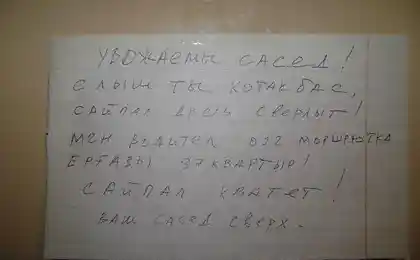 УВОЖАЕМЫ САСЕД!
СЛЫШ ТЫ КОТАКБАС,
САЙПАЛ СВЕРЛЫТ!
МЕН ВОДИТЕЛ МОРШРУТКА
ЕРГАЗЫ 37 КВАРТЫР!
САЙПАЛ ХВАТЕТ!
ВАШ САСЕД СВЕРХ.